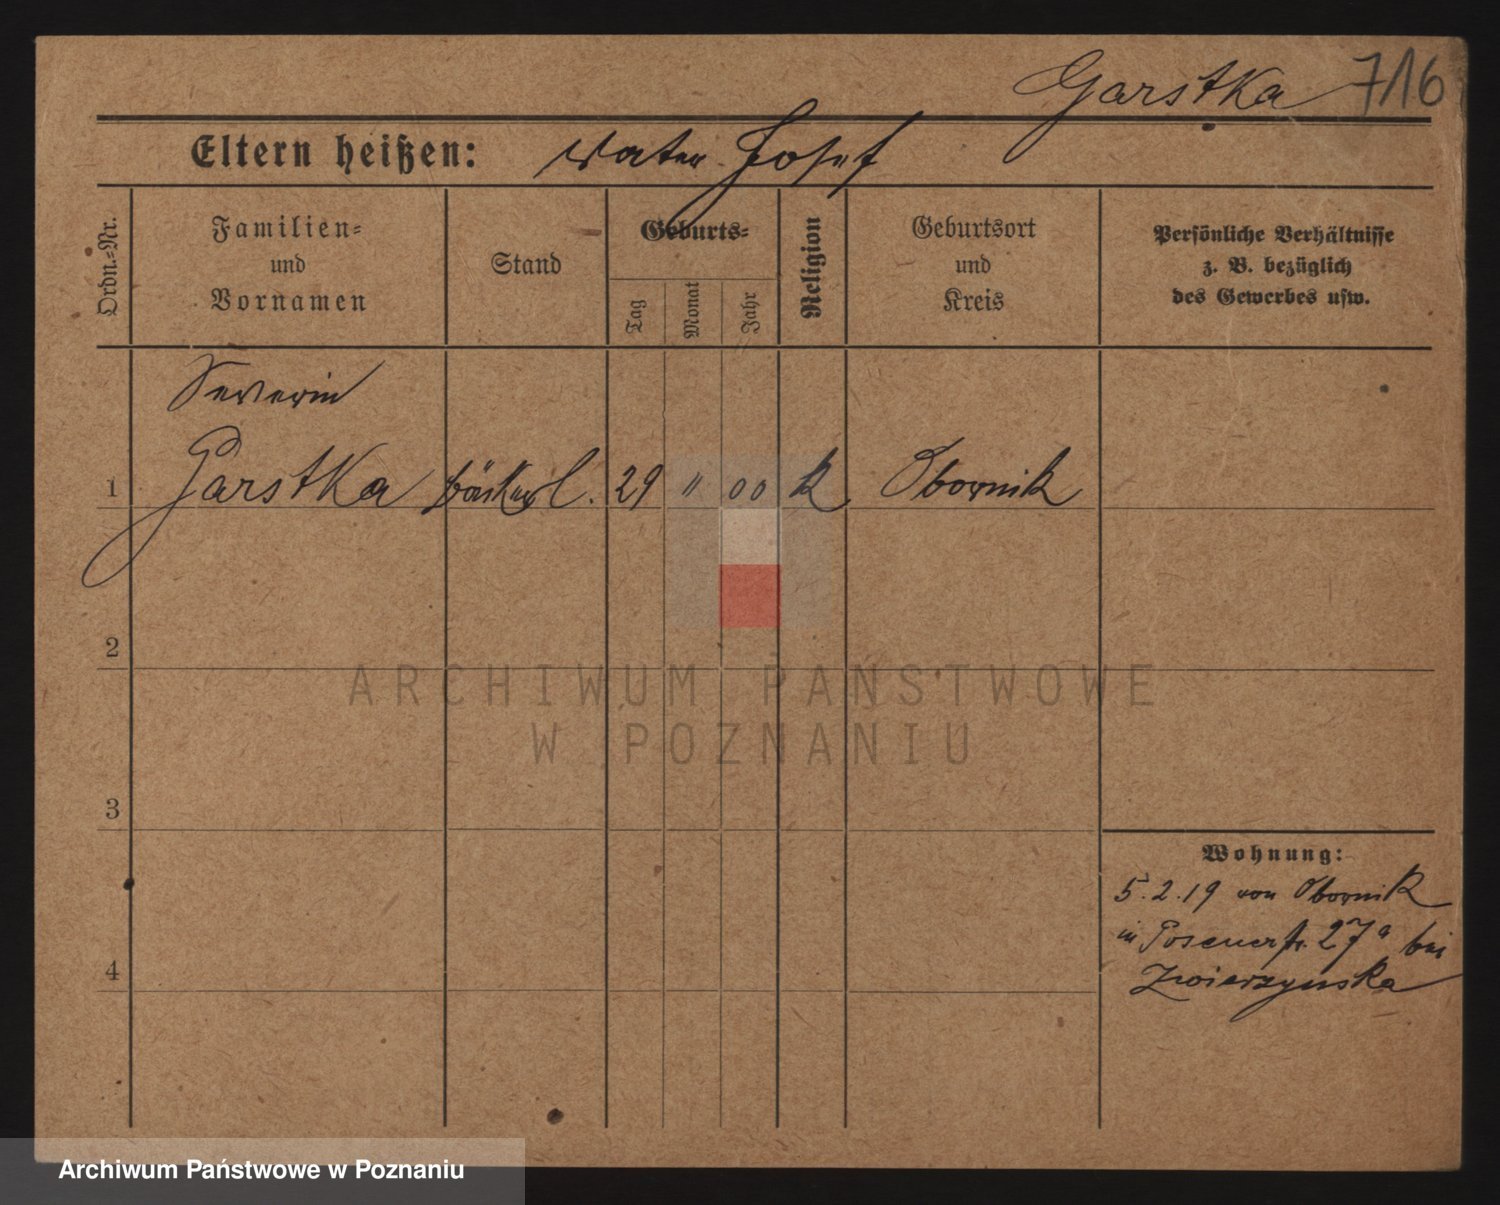 Garstka 716
Eltern heißen: Vater Josef
Ordn.-Nr.
Familien-
und
Vornamen
Stand
Geburts-
Tag
Monat
Jahr
Religion
Geburtsort
und
Kreis
Persönliche Verhältnisse
z. B. bezüglich
des Gewerbes usw.
Severin
1 Garstka Bäckerl. 29 11 00 k Obornik
2
3
4
Wohnung:
5.2.19 von Obornik
in Posenerstr. 27a bei
Zwierzynska
ARCHIWUM PAŃSTWOWE
W POZNANIU
Archiwum Państwowe w Poznaniu